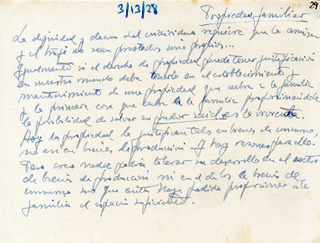 3/13/28
29
Propiedad familiar
La dignidad y decoro del individuo requiere que la camisa
y el traje no sean prestados sino propios.-
Igualmente si el derecho de propiedad puede tener justificación
en nuestro mundo debe tenerlo en el establecimiento y
mantenimiento de una propiedad que cubra a la familia
y la primera cosa que cubre a la familia proporcionándole
la posibilidad de salvar su pudor social es la vivienda.
Hoy la propiedad la justifican todos en bienes de consumo,
no así en bienes de producción. Y hay razones para ello.
Pero creo nadie podría tolerar su desarrollo en el sector
de bienes de producción ni en el de los bienes de
consumo sin que antes haya podido proporcionar a la
familia el espacio suficiente